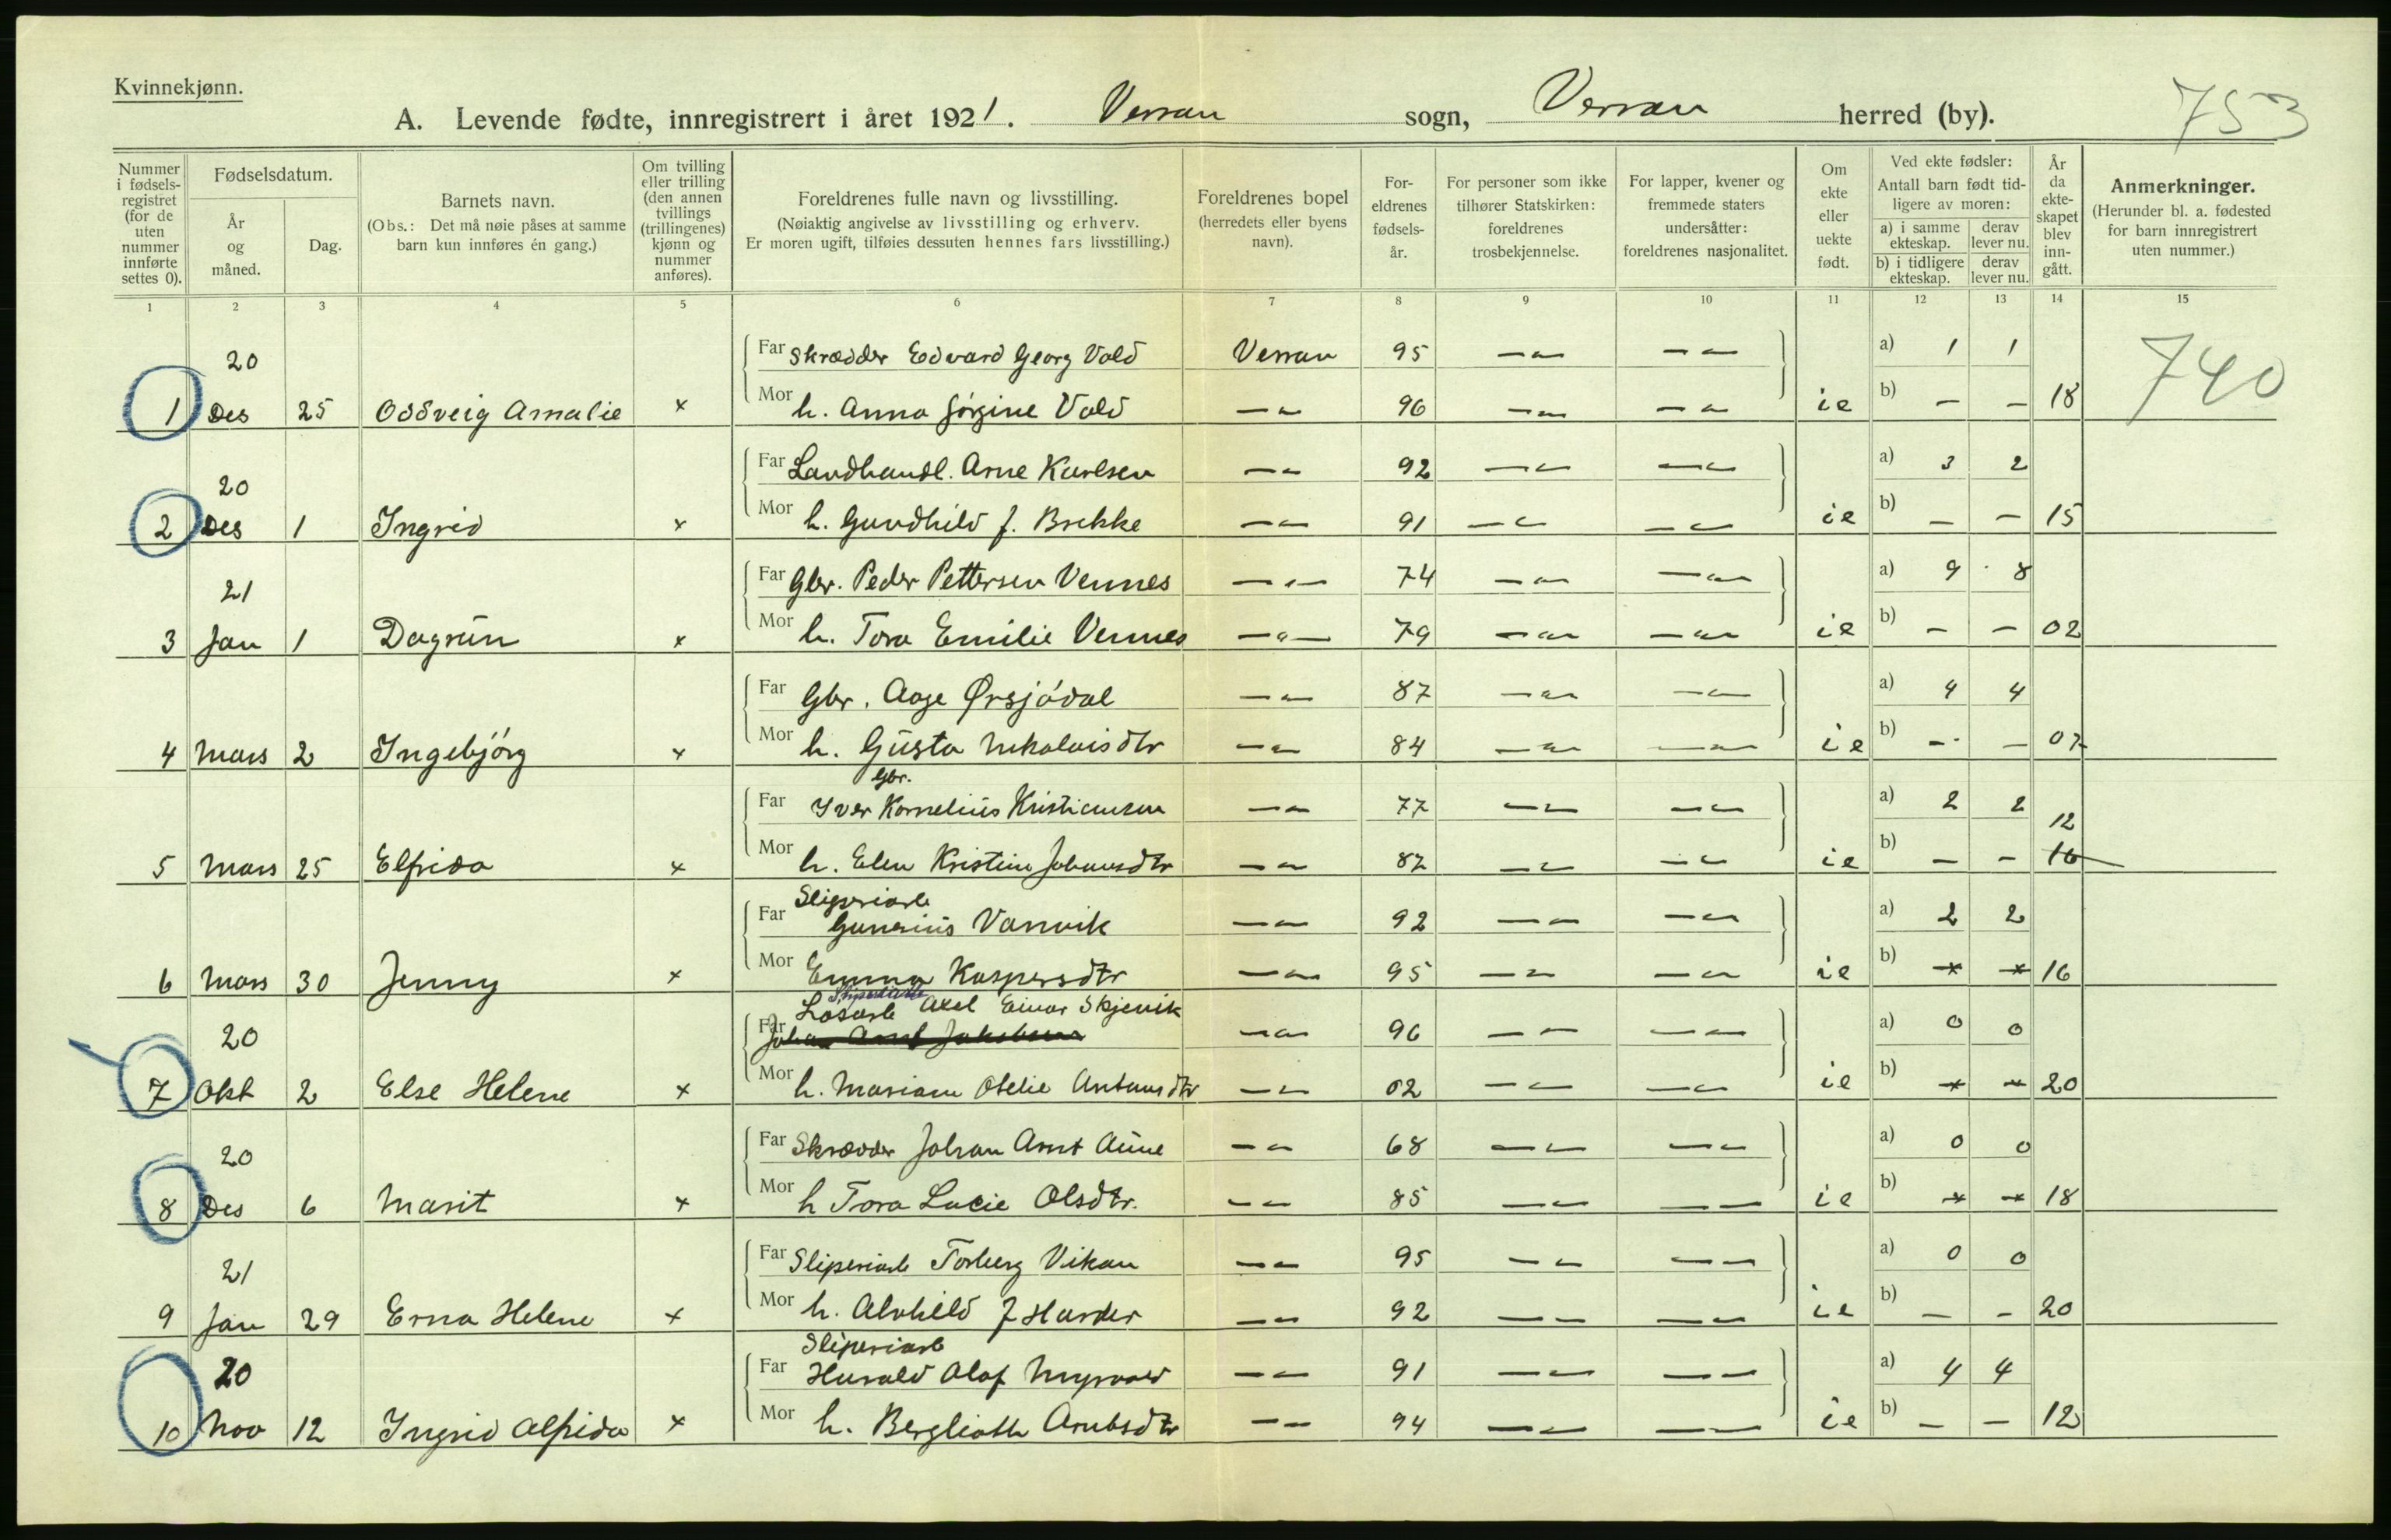 Kvinnekjønn.
A. Levende fødte, innregistrert i året 1921. Verran sogn, Verran herred (by). 753
Nummer i fødsels-registret (for de uten nummer innførte settes 0).
Fødselsdatum.
År og måned.
Dag.
Barnets navn.
(Obs.: Det må nøie påses at samme barn kun innføres én gang.)
Om tvilling eller trilling (den annen tvillings (trillingenes) kjønn og nummer anføres).
Foreldrenes fulle navn og livsstilling.
(Nøiaktig angivelse av livsstilling og erhverv.
Er moren ugift, tilføies dessuten hennes fars livsstilling.)
Foreldrenes bopel (herredets eller byens navn).
For-eldrenes fødsels-år.
For personer som ikke tilhører Statskirken: foreldrenes trosbekjennelse.
For lapper, kvener og fremmede staters undersåtter: foreldrenes nasjonalitet.
Om ekte eller uekte født.
Ved ekte fødsler:
Antall barn født tid-ligere av moren:
a) i samme ekteskap. derav lever nu.
b) i tidligere ekteskap. derav lever nu.
År da ekte-skapet blev inn-gått.
Anmerkninger.
(Herunder bl. a. fødested for barn innregistrert uten nummer.)
1 2 3 4 5 6 7 8 9 10 11 12 13 14 15
20 Far Skrædder Edvard Georg Vold Verran 95 — „ — „ a) 1 1 740
1 Des 25 Oddveig Amalie × Mor h. Anna Jørgine Vold — „ 96 — „ — „ ie b) — — 18
20 Far Landhandl. Arne Karlsen — „ 92 — „ — „ a) 3 2
2 Des 1 Ingrid × Mor h. Gundhild f. Brekke — „ 91 — „ — „ ie b) — — 15
21 Far Gbr. Peder Pettersen Vennes — „ — 74 — „ — „ a) 9 8
3 Jan 1 Dagrun × Mor h. Tora Emilie Vennes — „ — 79 — „ — „ ie b) — — 02
Far Gbr. Aage Ørsjødal — „ 87 — „ — „ a) 4 4
4 Mars 2 Ingebjørg × Mor h. Gusta Nikolaisdtr — „ 84 — „ — „ ie b) — — 07
Gbr.
Far Iver Kornelius Kristiansen — „ 77 — „ — „ a) 2 2 12
5 Mars 25 Elfrida × Mor h. Elen Kristine Johansdtr — „ 87 — „ — „ ie b) — — 16
Sliperiarb
Far Gunerius Vanvik — „ 92 — „ — „ a) 2 2
6 Mars 30 Jenny × Mor Emma Kaspersdtr — „ 95 — „ — „ ie b) × × 16
Sliperiarb
Løsarb Axel Einar Skjevik
20 Far Johan Arnt Jakobsen — „ 96 — „ — „ a) 0 0
7 Okt 2 Else Helene × Mor h. Mariane Otelie Antonsdtr — „ 02 — „ — „ ie b) × × 20
20 Far Skrædder Johan Arnt Aune — „ 68 — „ — „ a) 0 0
8 Des 6 Marit × Mor h Tora Lucie Olsdtr. — „ 85 — „ — — ie b) × × 18
21 Far Sliperiarb Torberg Vikan — „ 95 — „ — „ a) 0 0
9 Jan 29 Erna Helene × Mor h. Alvhild f Harder — „ 92 — — — „ ie b) — — 20
Sliperiarb
20 Far Harald Olaf Myrvold — „ 91 — „ — — a) 4 4
10 Nov 12 Ingrid Alfrida × Mor h. Bergliotk Arntsdtr — „ 94 — „ — — ie b) — — 12